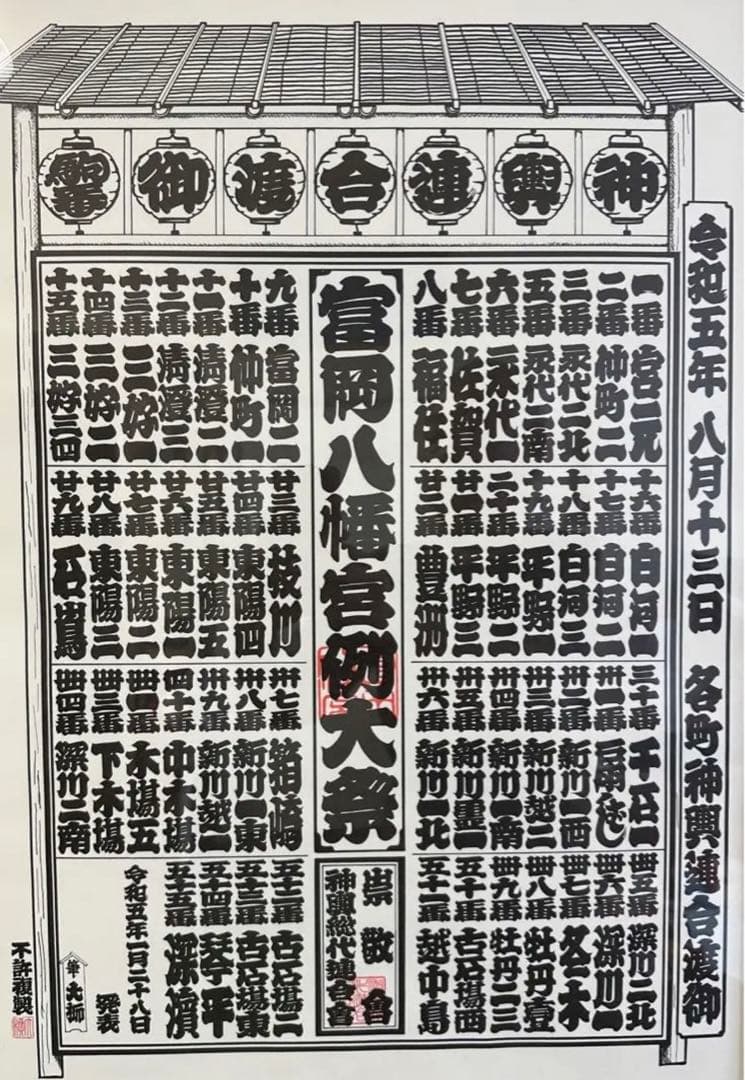 神輿連合渡御駒番
令和五年 八月十三日 各町神輿連合渡御
一番 宮元
二番 仲町二
三番 永代二北
五番 永代二南
六番 永代一
七番 佐賀
八番 福住
十六番 白河一
十七番 白河二
十八番 白河三
十九番 平野一
二十番 平野二
廿一番 平野三
廿二番 豊洲
三十番 千石一
卅一番 扇ばし
卅二番 新川一西
卅三番 新川越二
卅四番 新川一南
卅五番 新川霊二
卅六番 新川一北
卌五番 深川二北
卌六番 深川一
卌七番 冬木
卌八番 牡丹壹
卌九番 牡丹二三
五十番 古石場西
五十一番 越中島
富岡八幡宮例大祭
崇敬会
神輿総代連合会
九番 富岡二
十番 仲町一
十一番 清澄二
十二番 清澄三
十三番 三好一
十四番 三好二
十五番 三好三四
廿三番 枝川
廿四番 東陽四
廿五番 東陽五
廿六番 東陽一
廿七番 東陽二
廿八番 東陽三
廿九番 石島
卅七番 箱崎
卅八番 新川一東
卅九番 新川越一
四十番 中木場
木場五
卌三番 下木場
卌四番 深川二南
五十二番 古石場二
五十三番 古石場東
五十四番 琴平
五十五番 深濱
令和五年一月二十八日
発表
筆
不許複製